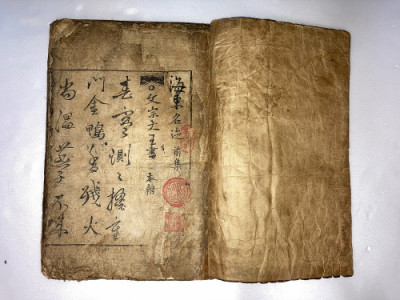 海東名迹 前集
文宗大王書 本朝
春寒測々掩重
門金鴨香殘火
尚溫燕子不來